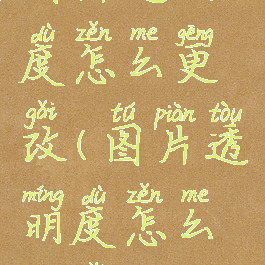 dù zěn me gēng
度怎么更
gǎi tú piàn tòu
改(图片透
míng dù zěn me
明度怎么